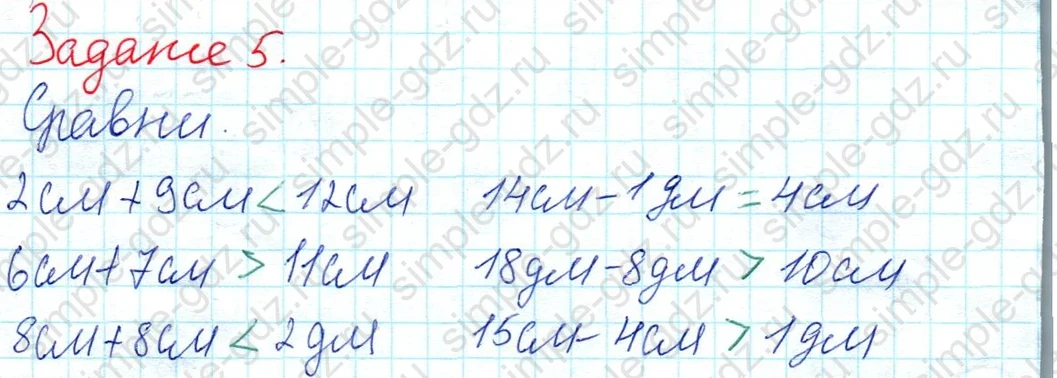 Задание 5.
Сравни.
2см+9см<12см 14см-1дм=4см
6см+7см>11см 18дм-8дм>10см
8см+8см<2дм 15см-4см>1дм
simple-gdz.ru